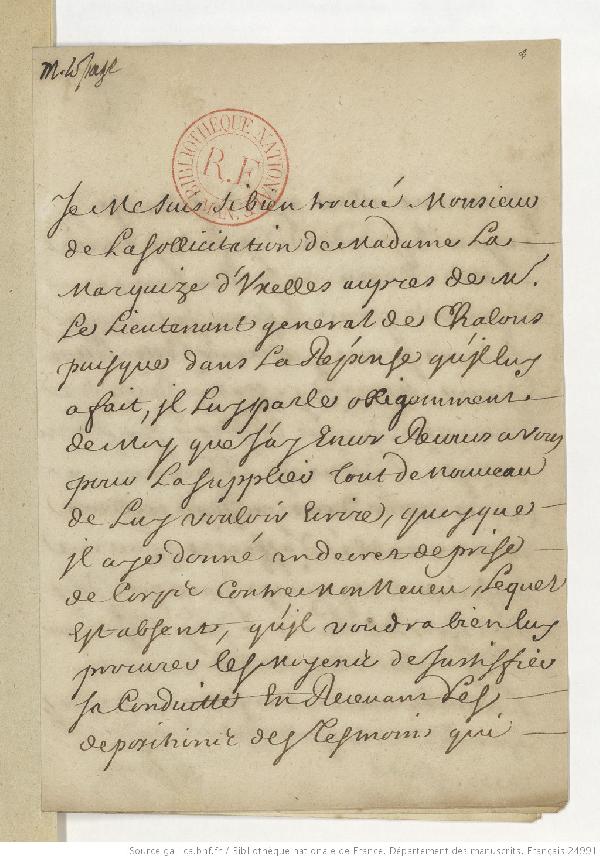 M. le page
BIBLIOTHÈQUE NATIONALE
R.F.
MAN.
Je Me suis si bien trouué Monsieur
de La sollicitation de Madame La
Marquize d'Vxelles aupres de Mr.
Le Lieutenant general de Chalons
puisque dans La Reponse qu'jl luy
a fait, jl Luy parle obligemment
de Moy que J'ay Encor Recours a vous
pour La supplier tout de nouveau
de Luy vouloir Ecrire, quoyque
jl aye donné un decret de prise
de Corps Contre Mon Neueu, Lequel
Est absent, qu'jl voudra bien luy
procurer les Moyens de Justiffier
sa Conduitte En Receuant Les
depositions des tesmoins qui
Source gallica.bnf.fr / Bibliothèque nationale de France. Département des manuscrits. Français 24991